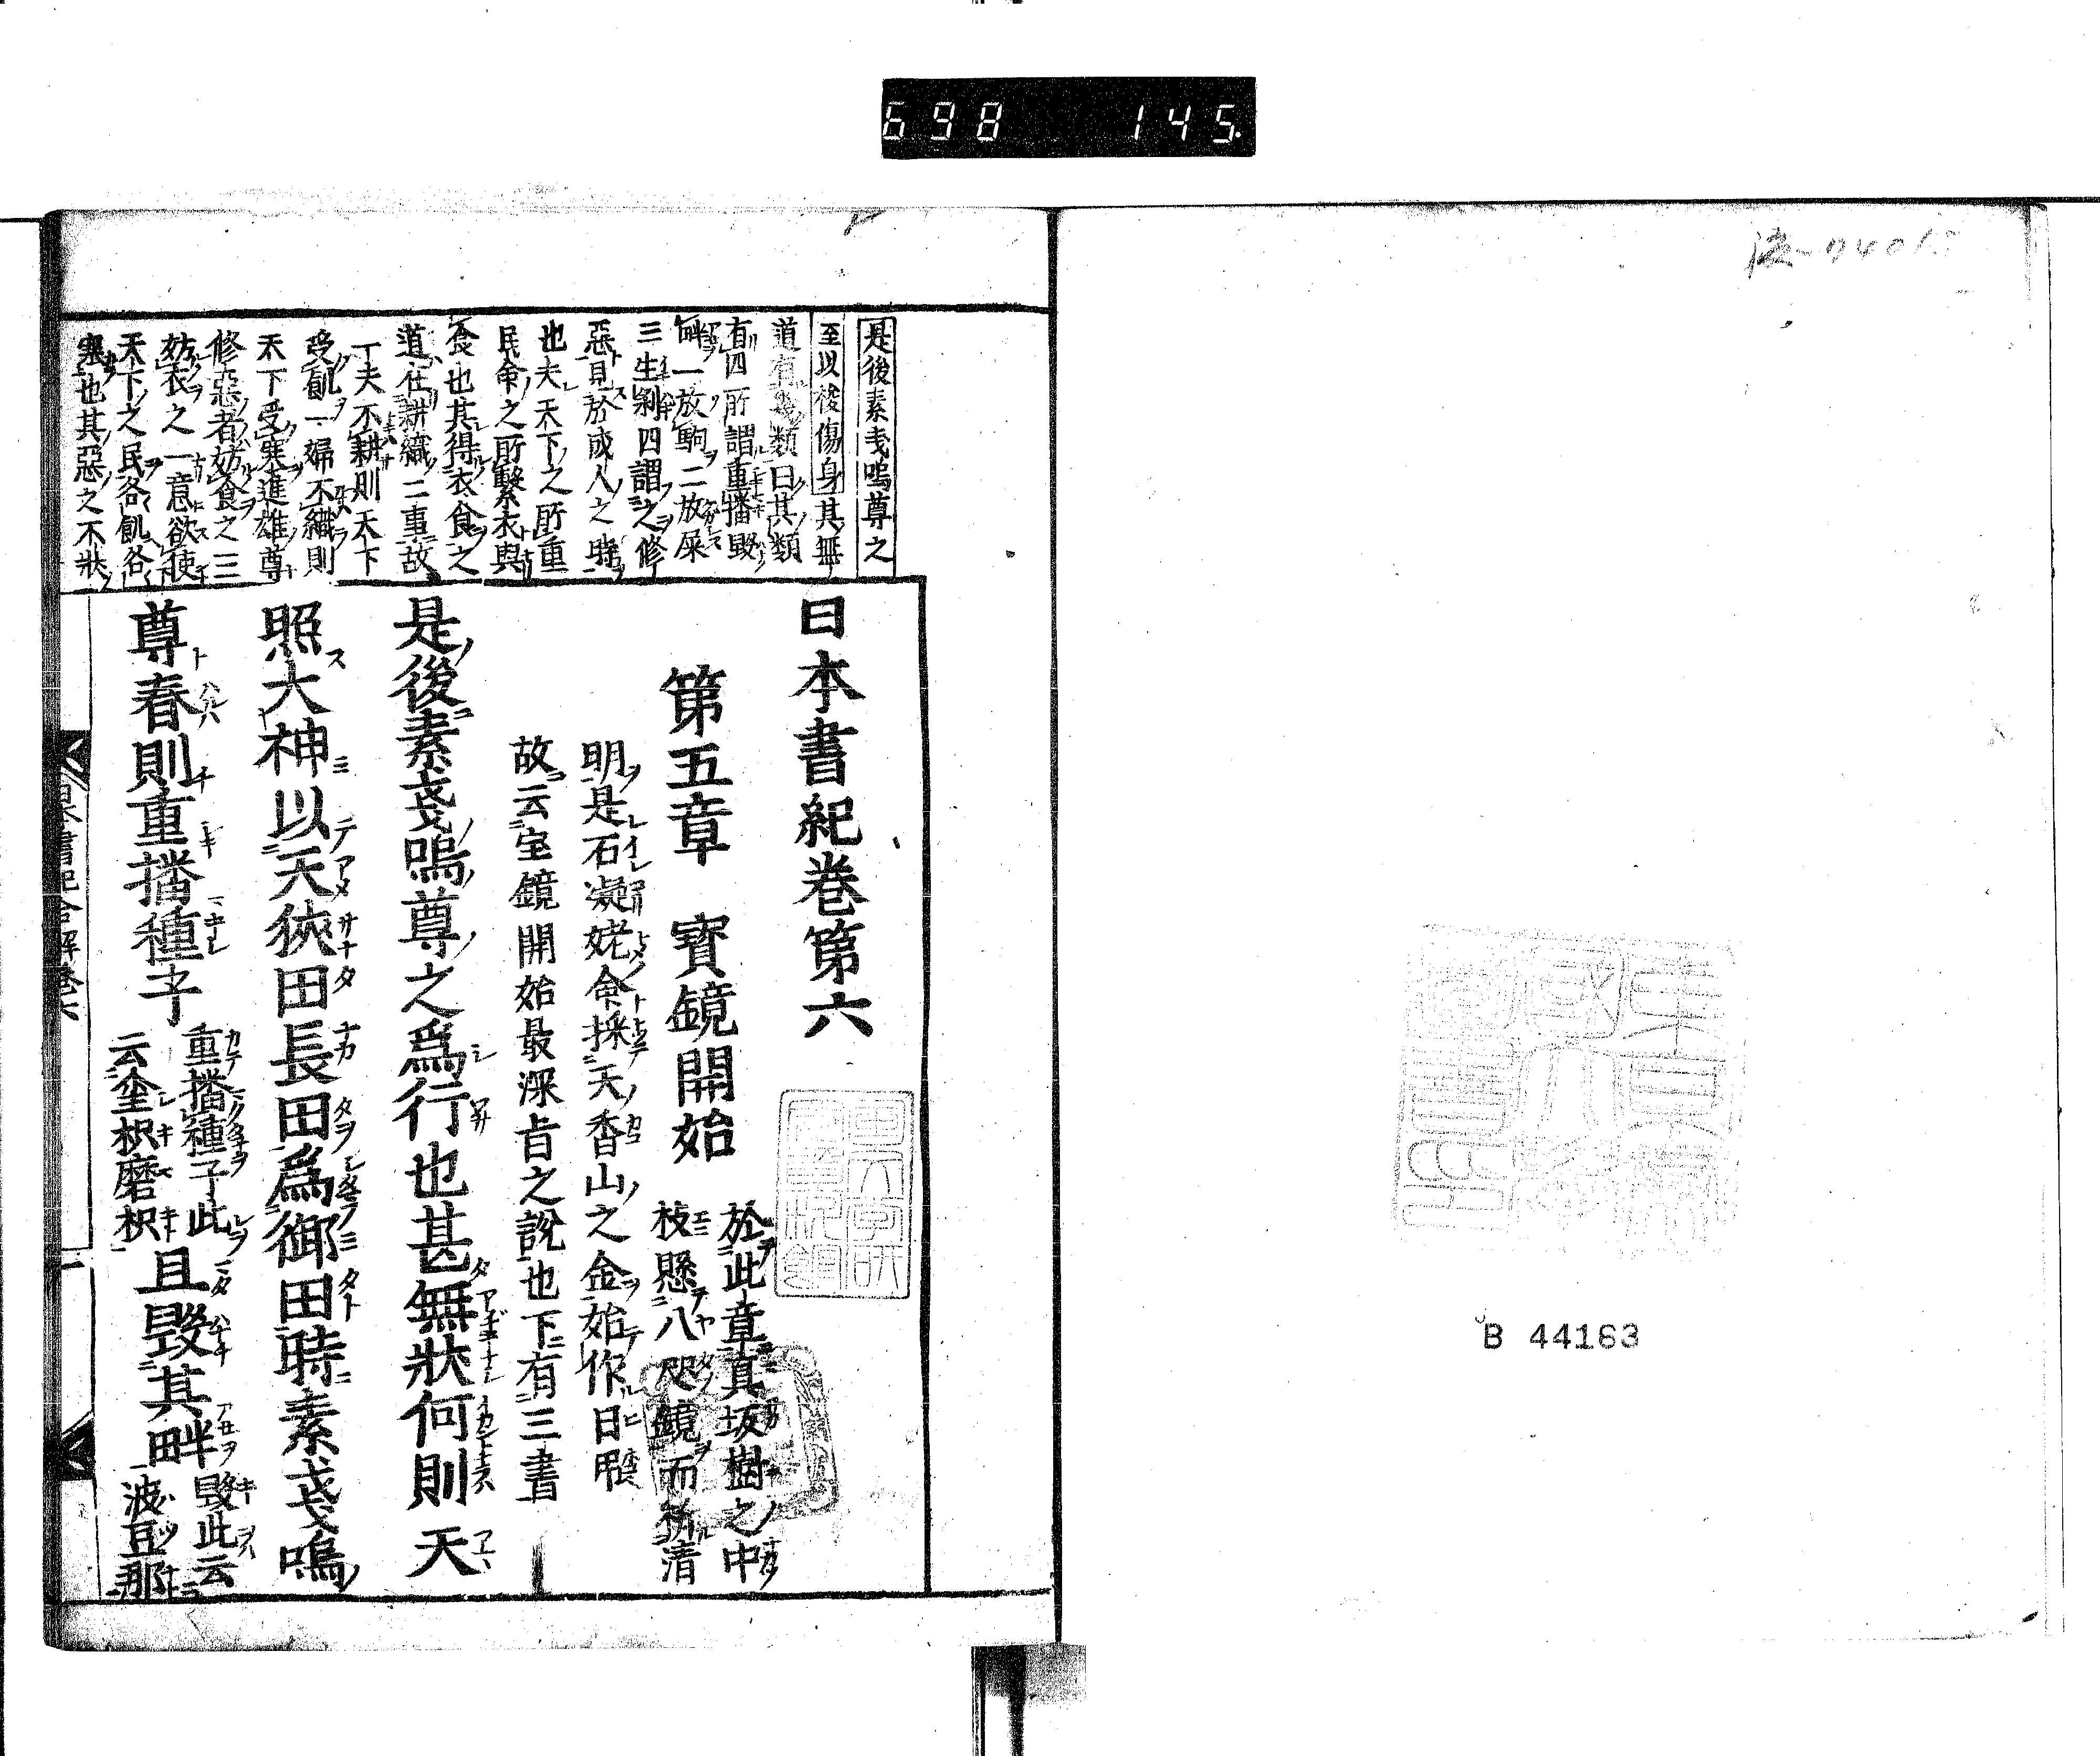 698 145
B 44163
是後素戔嗚尊之
至以梭傷身其無
道有幾類曰其類
有四所謂重播毀
畔一放駒二放屎
三生剝四謂之修
惡見於成人之時
也夫天下之所重
民命之所繫衣與
食也其得衣食之
道在耕織二事故
一夫不耕則天下
受飢一婦不織則
天下受寒進雄尊
修惡者妨食之三
妨衣之一意欲使
天下之民各飢各
寒也其惡之不狀
日本書紀卷第六
第五章 寶鏡開始
於此章真坂樹之中
枝懸八咫鏡而祈清
明是石凝姥命採天香山之金始作日矛
故云宝鏡開始最深旨之說也下有三書
是後素戔嗚尊之爲行也甚無狀何則天
照大神以天狹田長田爲御田時素戔嗚
尊春則重播種子
重播種子此
云塗枳磨枳
且毀其畔
毀此云
波豆那
日本書紀合解卷六
一